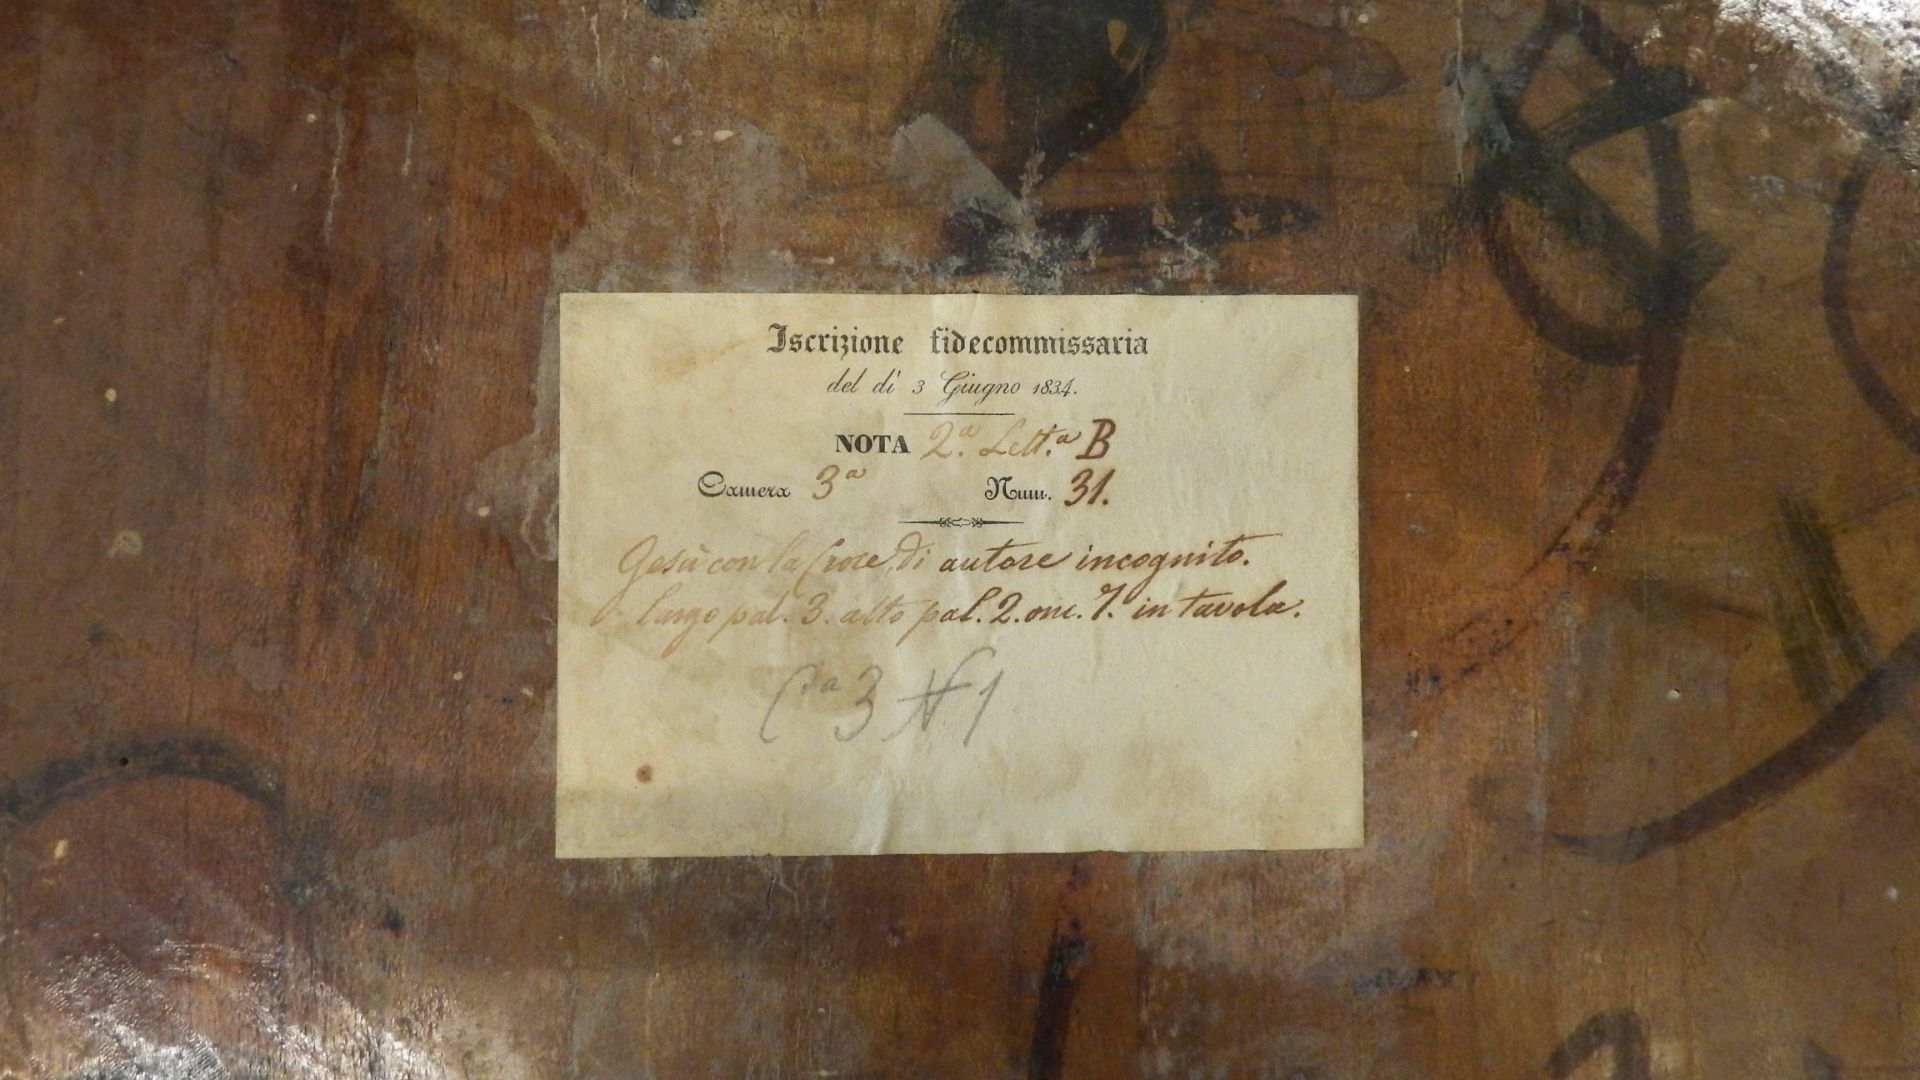 Iscrizione fidecommissaria
del dì 3 Giugno 1834.
NOTA 2.ª Lett.ª B
Camera 3ª Num. 31.
Gesù con la Croce, di autore incognito.
largo pal. 3. alto pal. 2. onc. 7. in tavola.
C.ª 3 N 1